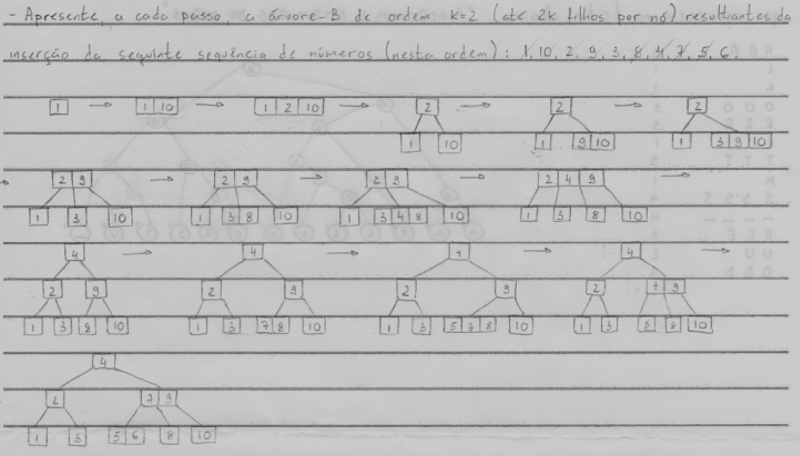 - Apresente, a cada passo, a árvore-B de ordem k=2 (até 2k filhos por nó) resultantes da
inserção da seguinte sequência de números (nesta ordem): 1, 10, 2, 9, 3, 8, 4, 7, 5, 6.
1 → 1 10 → 1 2 10 → 2 → 2 → 2
1 10 1 9 10 1 3 9 10
→ 2 9 → 2 9 → 2 9 → 2 4 9 →
1 3 10 1 3 8 10 1 3 4 8 10 1 3 8 10
4 → 4 → 4 → 4 →
2 9 2 9 2 9 2 7 9
1 3 8 10 1 3 7 8 10 1 3 5 7 8 10 1 3 5 8 10
4
2 7 9
1 3 5 6 8 10